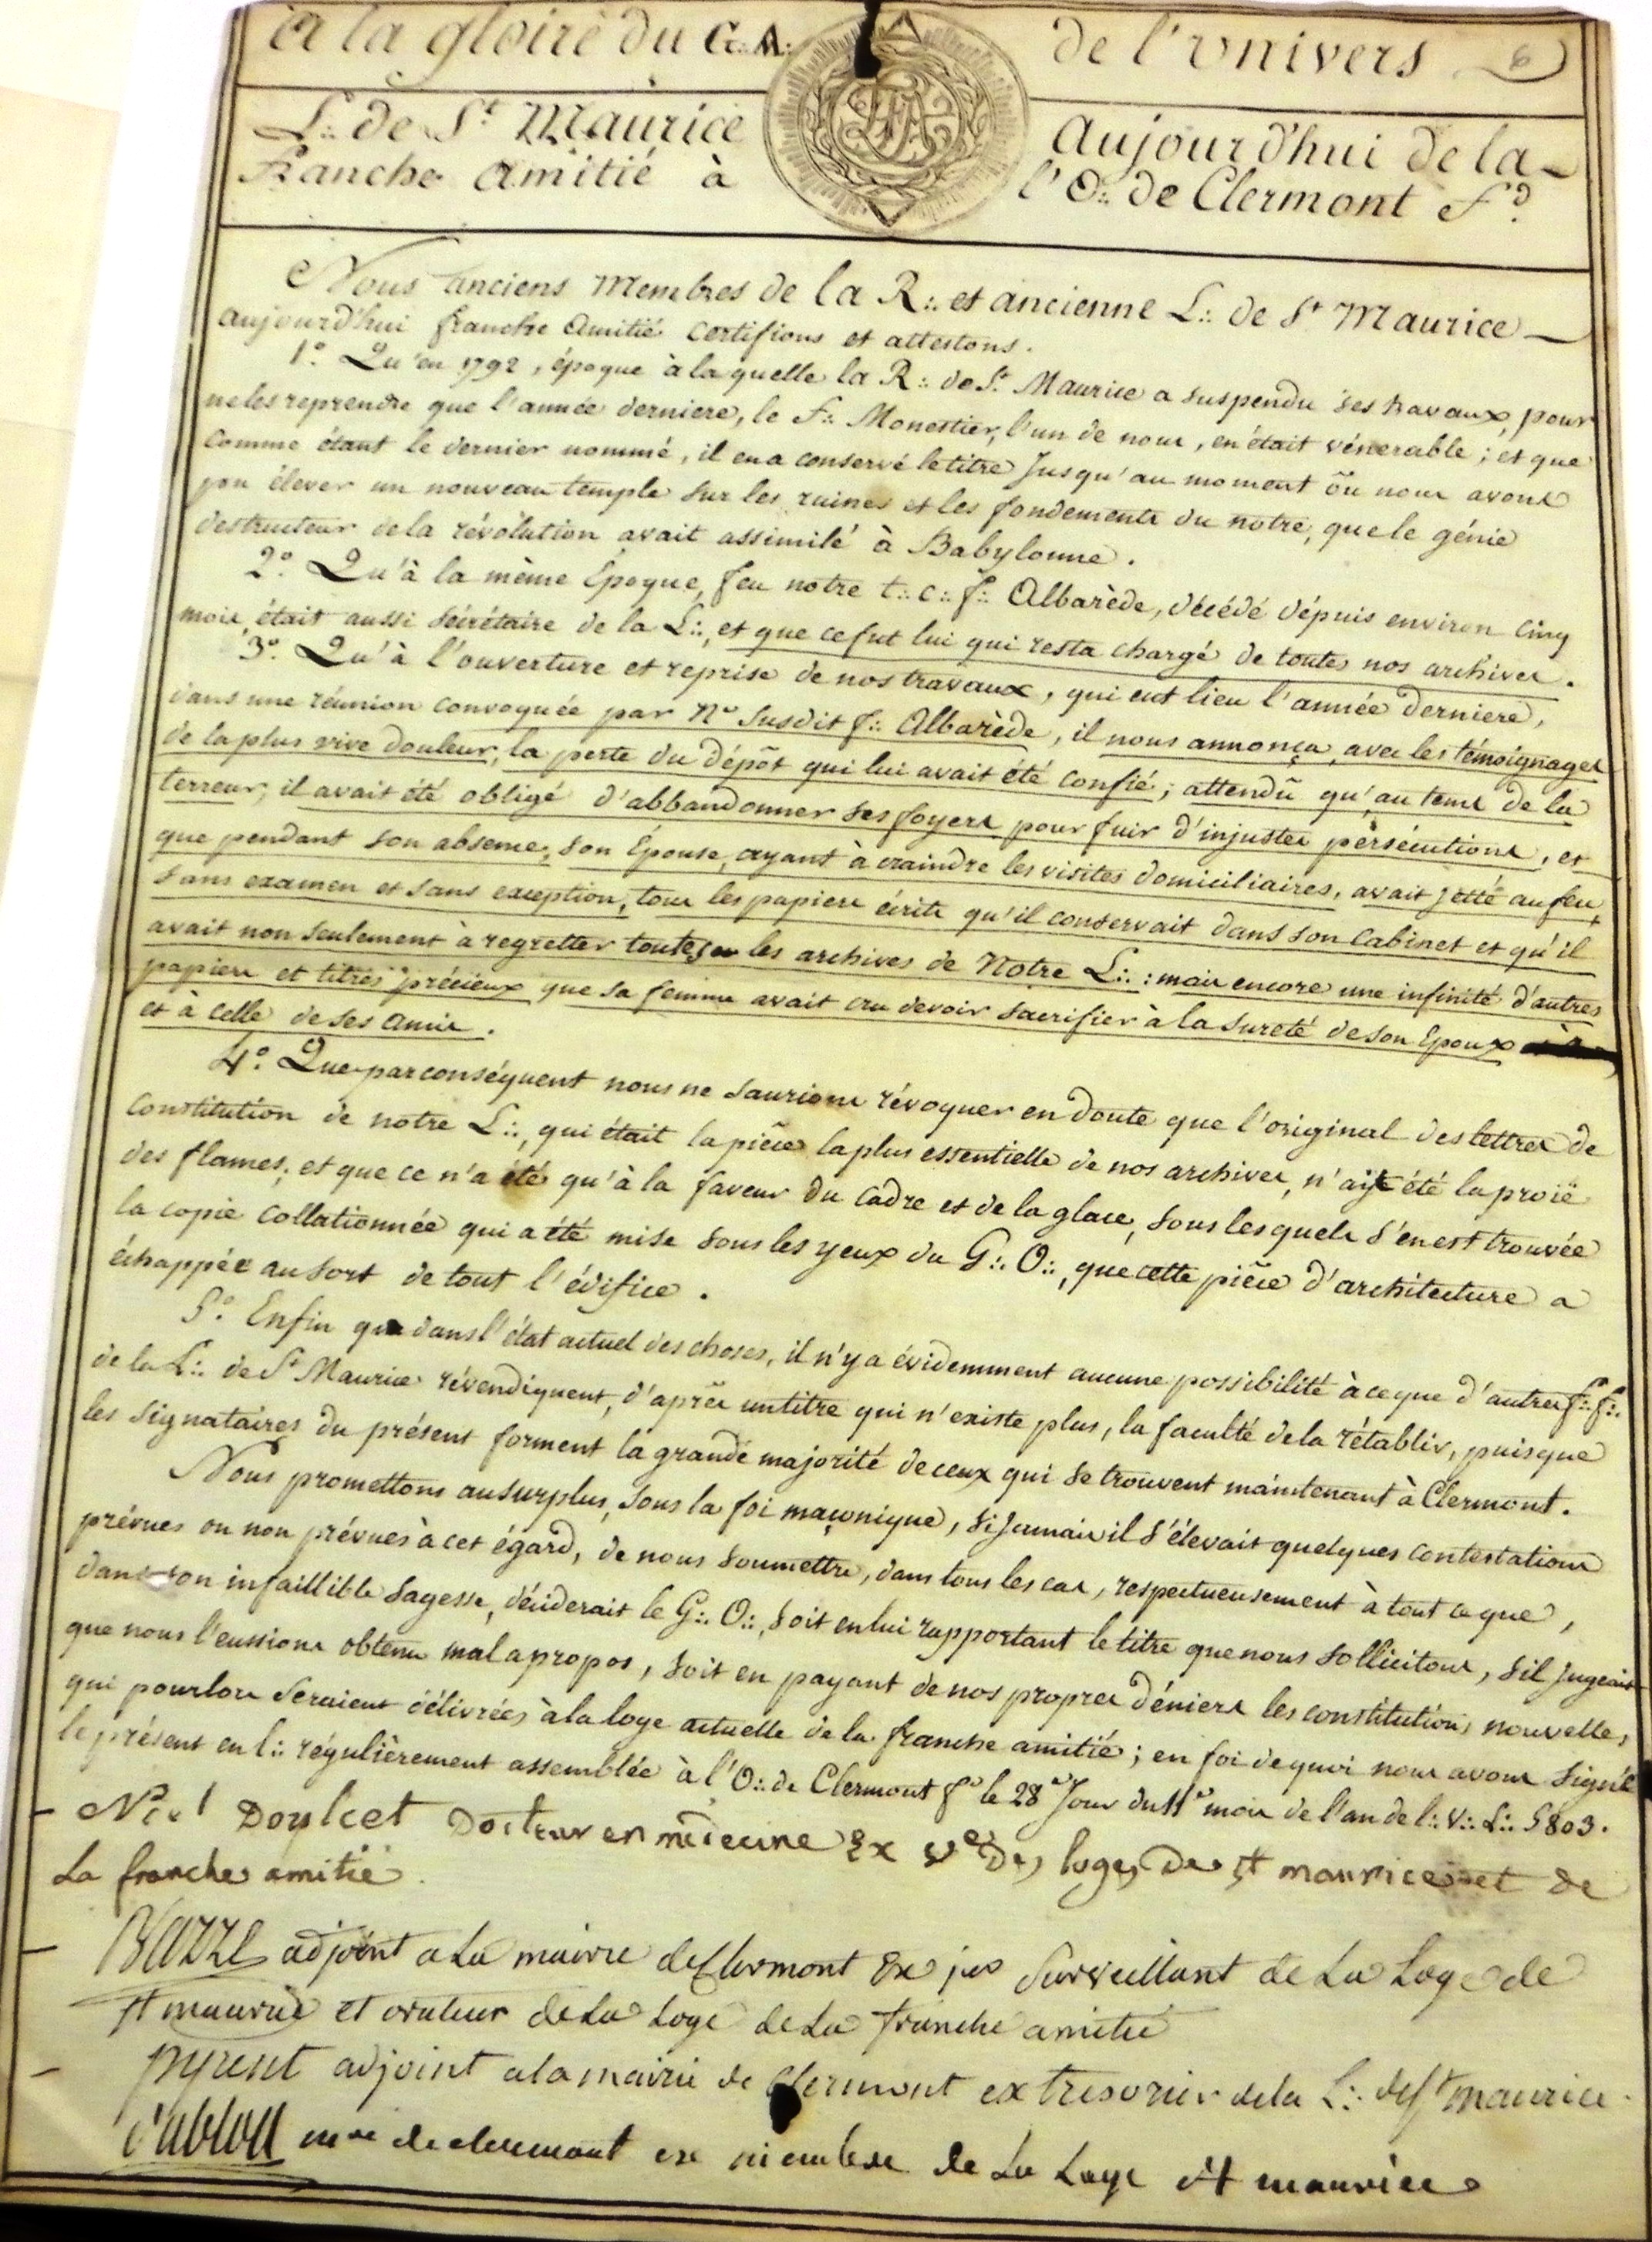 A la gloire du G.·. A.·. de l'univers
L.·. de St Maurice aujourd'hui de la
franche amitié à l'O.·. de Clermont fd.
Nous anciens Membres de la R.·. et ancienne L.·. de St Maurice
aujourd'hui franche amitié certifions et attestons.
1.º Qu'en 1792, époque à la quelle la R.·. de St Maurice a suspendu ses travaux, pour
ne les reprendre que l'année derniere, le F.·. Monestier, l'un de nous, en était vénerable ; et que
comme étant le dernier nommé, il en a conservé le titre jusqu'au moment õu nous avons
pu élever un nouveau temple sur les ruines et les fondements du notre, que le génie
destructeur de la révolution avait assimilé à Babylonne.
2.º Qu'à la même Epoque, feu notre t.·. c.·. f.·. Albarède, décédé dépuis environ cinq
mois, était aussi sécrétaire de la L.·., et que ce fut lui qui resta chargé de toutes nos archives.
3.º Qu'à l'ouverture et reprise de nos travaux, qui eut lieu l'année derniere,
dans une réunion convoquée par No susdit f.·. Albarède, il nous annonça, avec les témoignages
de la plus vive douleur, la perte du dépõt qui lui avait été confié ; attendũ qu'au tems de la
terreur, il avait été obligé d'abbandonner ses foyers pour fuir d'injustes persécutions, et
que pendant son absence, son Épouse, ayant à craindre les visites domiciliaires, avait jetté au feu,
sans examen et sans exception, tous les papiers écrits qu'il conservait dans son cabinet et qu'il
avait non seulement à regretter toutes les archives de Notre L.·. : mais encore une infinité d'autres
papiers et titres précieux que sa femme avait cru devoir sacrifier à la sureté de son Epoux
et à celle de ses amis.
4.º Que par conséquent nous ne saurions révoquer en doute que l'original des lettres de
constitution de notre L.·., qui était la piẽce la plus essentielle de nos archives, n'ait été la proïe
des flames, et que ce n'a été qu'à la faveur du cadre et de la glace, sous lesquels s'en est trouvée
la copie collationnée qui a été mise sous les yeux du G.·. O.·., que cette piẽce d'architecture a
échappée au sort de tout l'édifice.
5.º Enfin que dans l'état actuel des choses, il n'y a évidemment aucune possibilité à ce que d'autres f.·. f.·.
de la L.·. de St Maurice révendiquent, d'aprẽs un titre qui n'existe plus, la faculté de la rétablir, puisque
les signataires du présent forment la grande majorité de ceux qui se trouvent maintenant à Clermont.
Nous promettons au surplus, sous la foi maçonique, si jamais il s'élevait quelques contestations
prévues ou non prévues à cet égard, de nous soumettre, dans tous les cas, respectueusement à tout ce que,
dans son infaillible sagesse, déciderait le G.·. O.·., soit en lui rapportant le titre que nous sollicitons, s'il jugeait
que nous l'eussions obtenu mal a propos, soit en payant de nos propres déniers les constitutions nouvelles,
qui pourlors seraient délivrées à la loge actuelle de la franche amitié ; en foi de quoi nous avons signé
le présent en l.·. régulièrement assemblée à l'O.·. de Clermont fd le 28e jour du 11e mois de l'an de l.·. V.·. L.·. 5803.
Docteur en médecine Ex ve des loges de st maurice et de
La franche amitié
adjoint a la mairie de Clermont Ex per Surveillant de La Loge de
st maurice et orateur de La Loge de La franche amitié
adjoint a la mairie de Clermont ex tresorier de la L.·. de St maurice
de clermont ex membre de La Loge st maurice